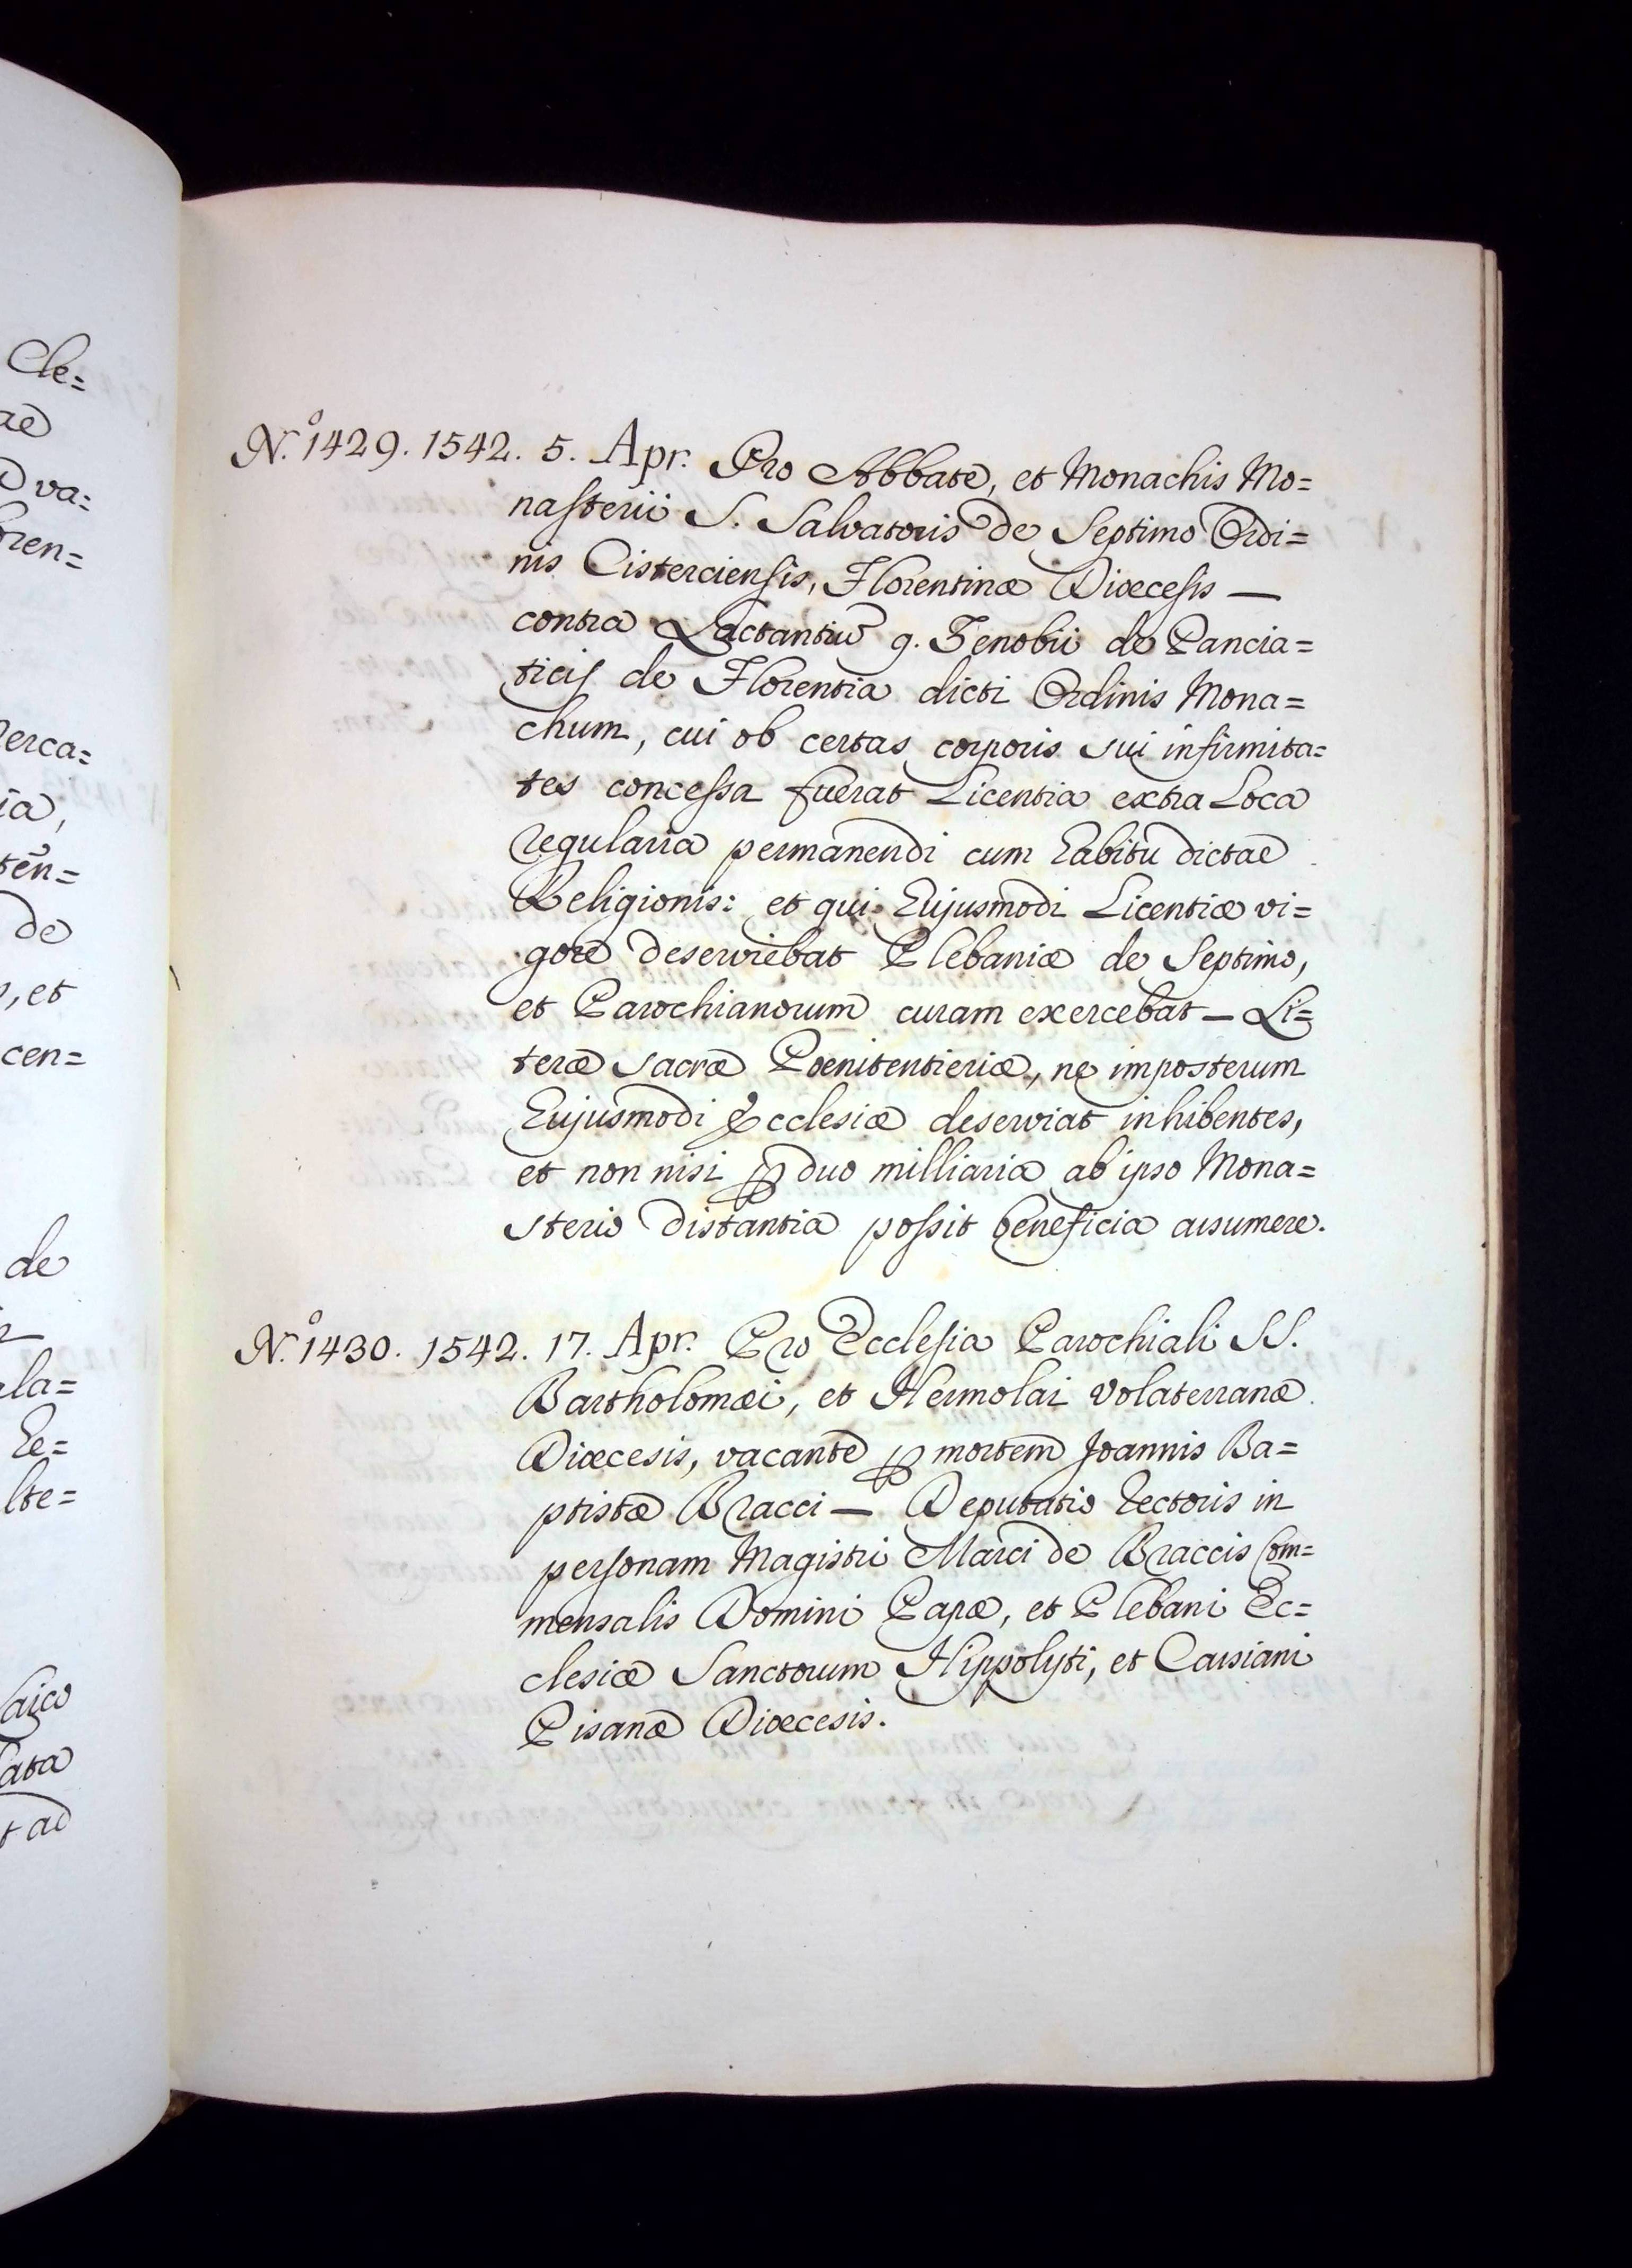 Cle=
va=
oren=
erca=
ia,
ten=
de
, et
cen=
de
la=
he=
lte=
aico
lata
t ad
N.º 1429. 1542. 5. Apr. Pro Abbate, et Monachis Mo=
nasterii S. Salvatoris de Septimo Ordi=
nis Cisterciensis, Florentinæ Diœcesis —
contra Lactantiū q. Zenobii de Pancia=
ticis de Florentia dicti Ordinis Mona=
chum, cui ob certas corporis sui infirmita=
tes concessa fuerat Licentia extra Loca
regularia permanendi cum habitu dictae
Religionis: et qui hujusmodi Licentiæ vi=
gore deserviebat Plebaniæ de Septimo,
et Parochianorum curam exercebat — Li=
teræ sacræ Poenitentieriæ, ne imposterum
hujusmodi Ecclesiæ deserviat inhibentes,
et non nisi ꝑ duo milliaria ab ipso Mona=
sterio distantia possit beneficia assumere.
N.º 1430. 1542. 17. Apr. Pro Ecclesia Parochiali SS.
Bartholomæi, et Hermolai Volaterranæ
Diœcesis, vacante ꝑ mortem Joannis Ba=
ptistæ Bracci — Deputatio Rectoris in
personam Magistri Marci de Braccis Com=
mensalis Domini Papæ, et Plebani Ec=
clesiæ Sanctorum Hippolyti, et Cassiani
Pisanæ Diœcesis.